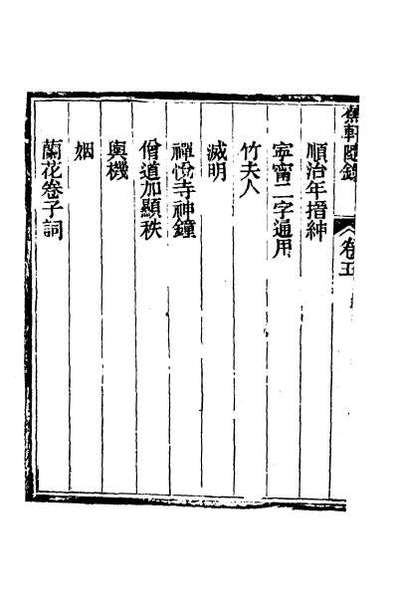 蕉軒隨錄 卷五
順治年搢紳
寧甯二字通用
竹夫人
滅明
禪悅寺神鐘
僧道加顯秩
輿機
姻
蘭花卷子詞